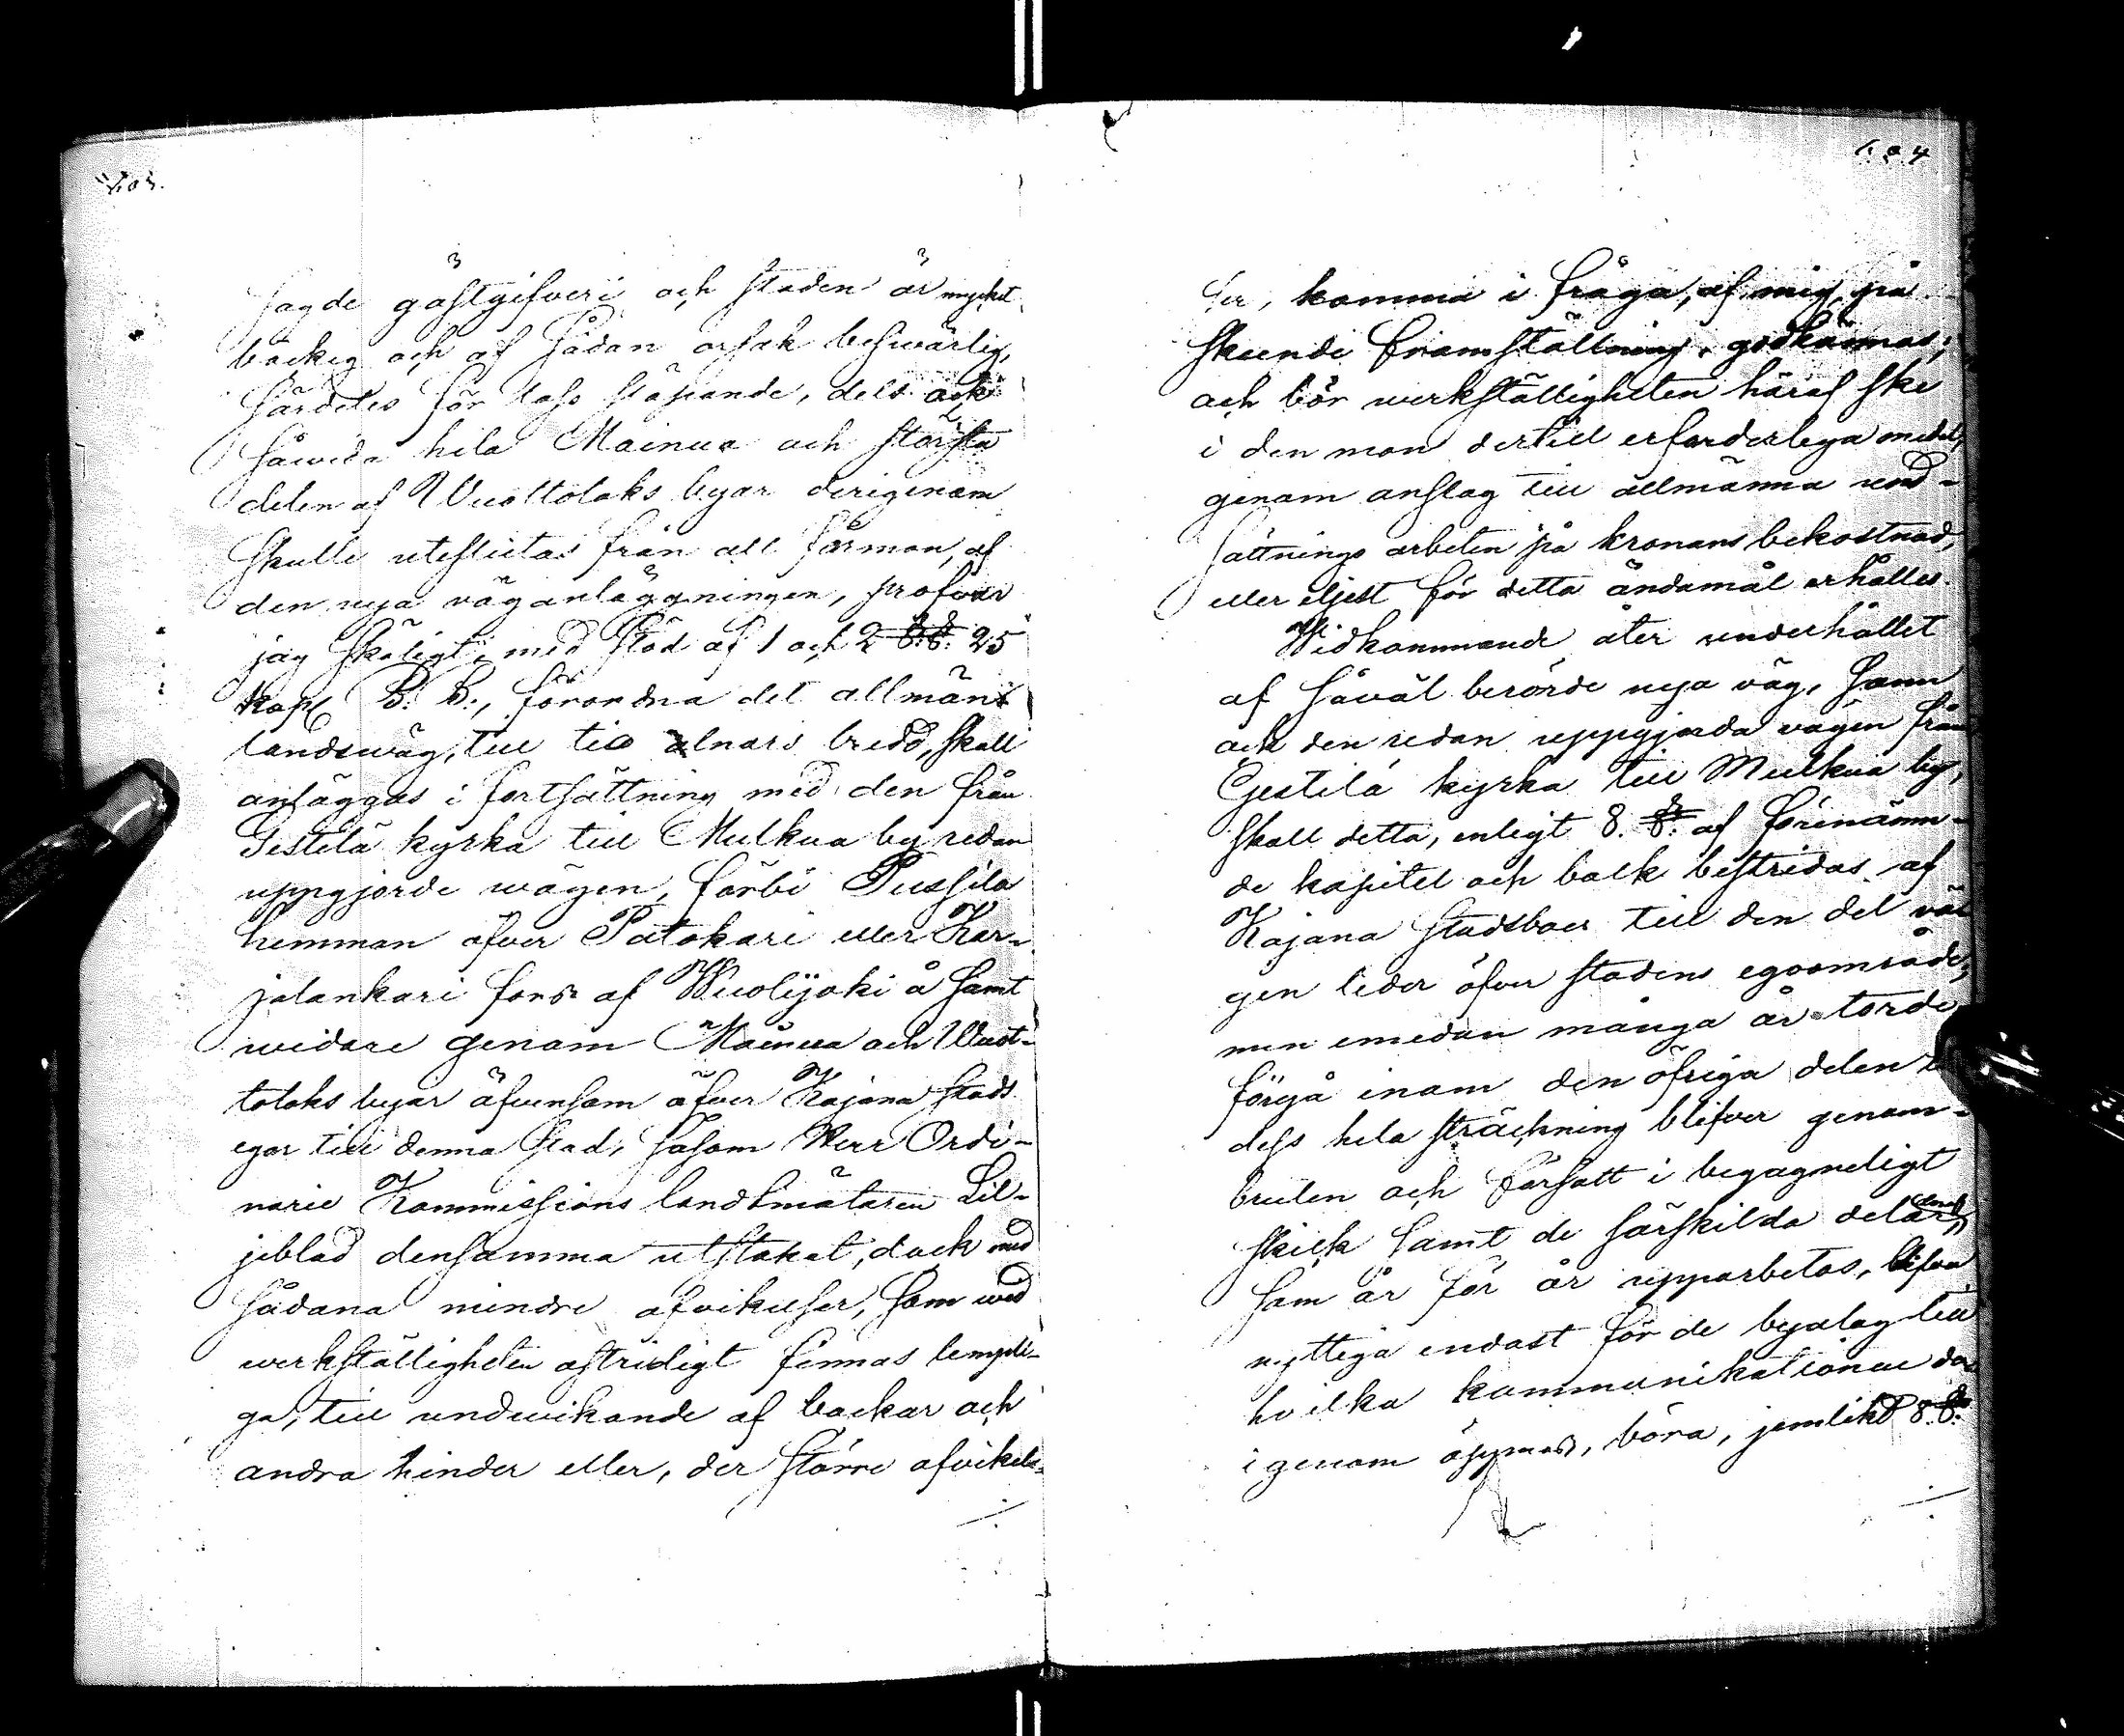 sagde gästgifveri och staden är mycket
backig och af sådan orsak besvärlig,
särdeles för lass släpande, dels ock
såvida hela Mainua och största
delen af Vuottolaks byar derigenom
skulle uteslutas från all förmon, af
den nya väganläggningen, profvar
jag skäligt, med stöd af 1 och 2 §.§. 25
kap. B. B., förordna det allmän
landsväg, till tio alnars bredd, skall
anläggas i fortsättning med den från
Pestilä kyrka till Mulkua by redan
uppgjorde wägen, förbi Pussila
hemman öfver Patokari eller Kar-
jalankari fors af Wuolijoki å samt
widare genom Mainua och Vuot-
tolaks byar äfvensom öfver Kajana stads
egor till denna stad, såsom Herr Ordi-
narie Kommissions landtmätaren Lil-
jeblad densamma utstakat, dock med
sådana mindre afvikelser, som wid
werkställigheten ostridigt finnas lempli-
ga, till undvikande af backar och
andra hinder eller, der större afvikel-
604
ser, komma i fråga, af mig, på
skeende framställning, godkännas;
och bör werkställigheten häraf ske
i den mon dertill erforderliga medel,
genom anslag till allmänna und-
sättnings arbeten på kronans bekostnad,
eller eljest för detta ändamål erhålles.
Widkommande åter underhållet
af såväl berörde nya väg, som
ock den redan uppgjorda vägen från
Pestilä kyrka till Mulkua by,
skall detta, enligt 8. §. af förenämn-
de kapitel och balk bestridas af
Kajana stadsboer till den del vä-
gen leder öfver stadens egoområde,
men emedan många år torde
förgå inom den öfriga delen
dess hela sträckning blifver genom-
bruten och försatt i begagneligt
skick samt de särskilda delar,
som år för år upparbetas, blifva
nyttiga endast för de byalag till
hvilka kommunikationen der
igenom öppnas, böra, jemlikt 8 §.